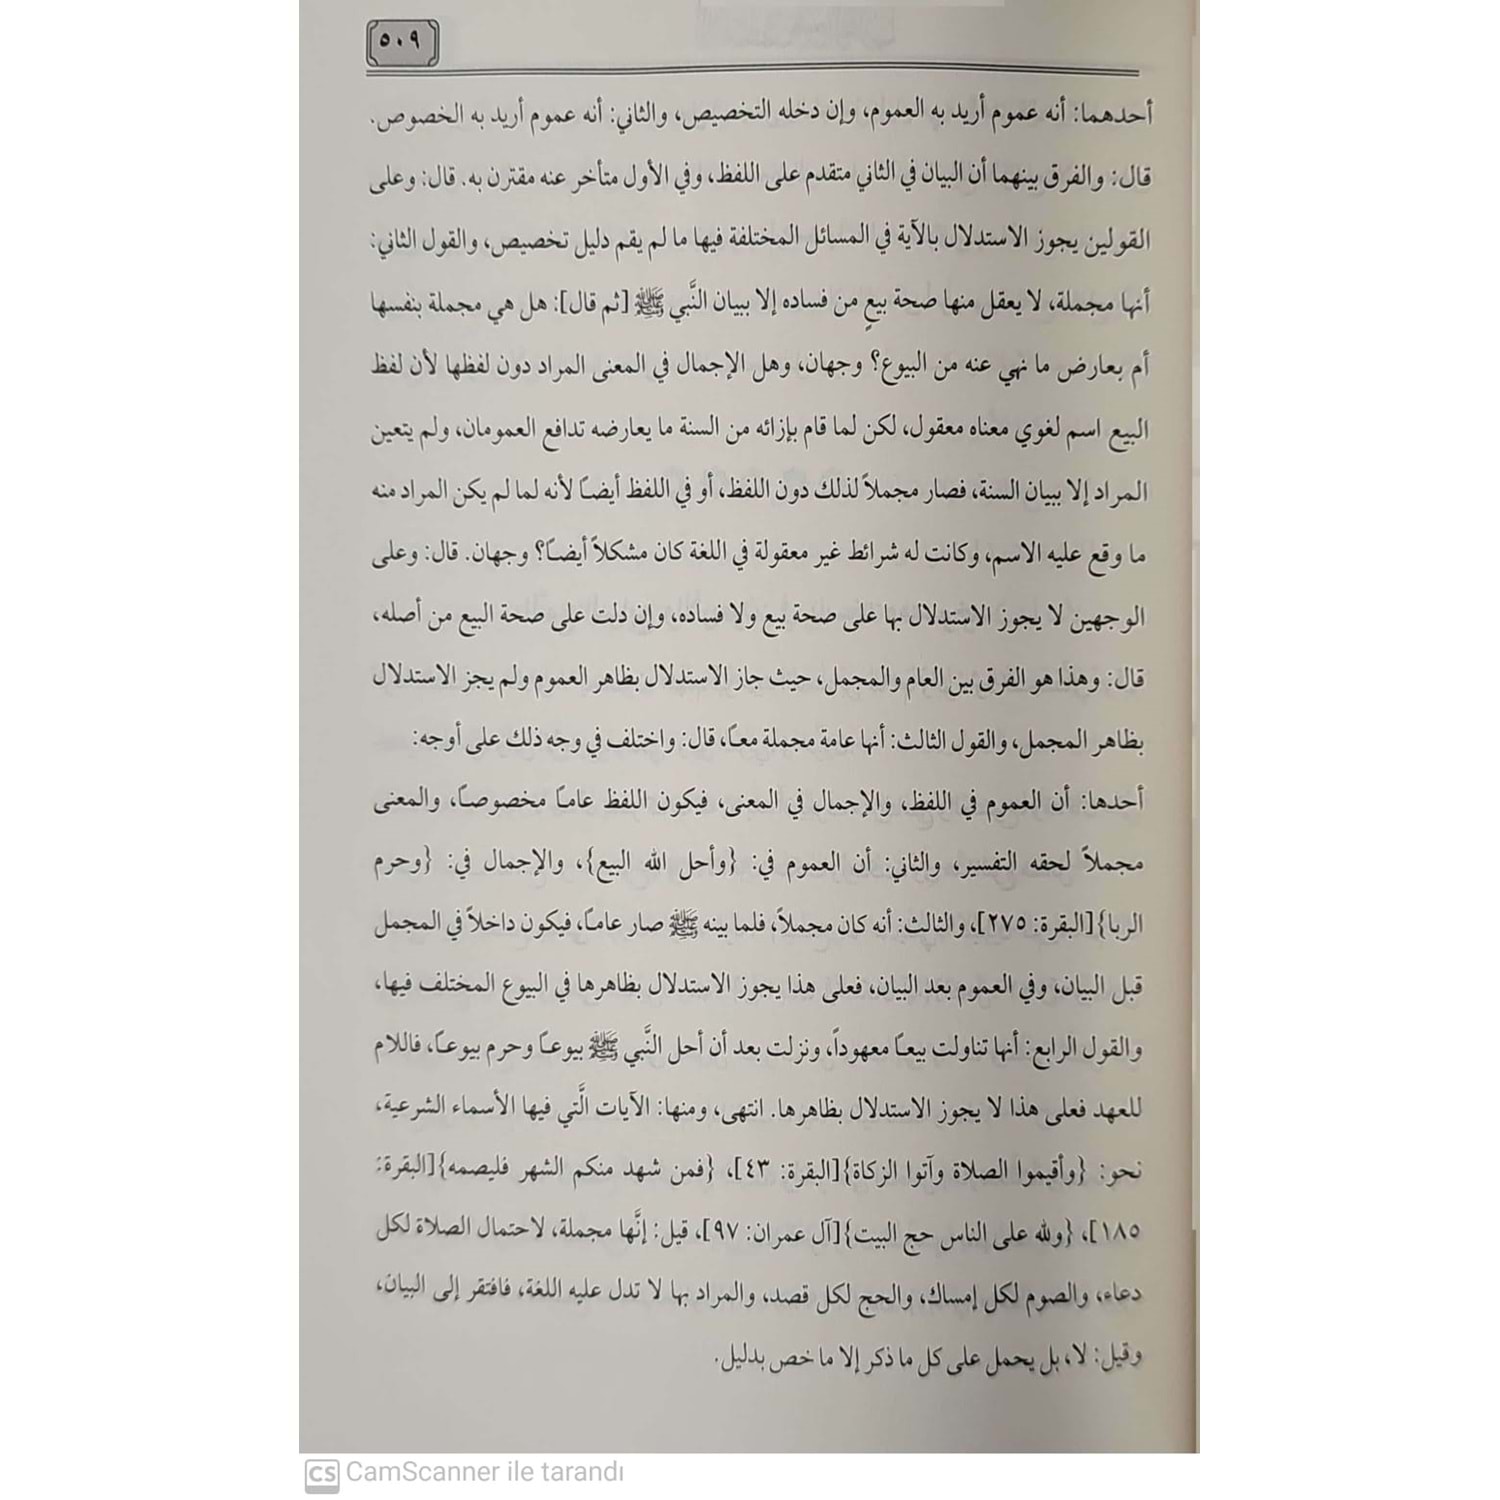 ٥٠٩
أحدهما: أنه عموم أريد به العموم، وإن دخله التخصيص، والثاني: أنه عموم أريد به الخصوص.
قال: والفرق بينهما أن البيان في الثاني متقدم على اللفظ، وفي الأول متأخر عنه مقترن به. قال: وعلى
القولين يجوز الاستدلال بالآية في المسائل المختلفة فيها ما لم يقم دليل تخصيص، والقول الثاني:
أنها مجملة، لا يعقل منها صحة بيعٍ من فساده إلا ببيان النَّبي ﷺ [ثم قال]: هل هي مجملة بنفسها
أم بعارض ما نهي عنه من البيوع؟ وجهان، وهل الإجمال في المعنى المراد دون لفظها لأن لفظ
البيع اسم لغوي معناه معقول، لكن لما قام بإزائه من السنة ما يعارضه تدافع العمومان، ولم يتعين
المراد إلا ببيان السنة، فصار مجملاً لذلك دون اللفظ، أو في اللفظ أيضاً لأنه لما لم يكن المراد منه
ما وقع عليه الاسم، وكانت له شرائط غير معقولة في اللغة كان مشكلاً أيضاً؟ وجهان. قال: وعلى
الوجهين لا يجوز الاستدلال بها على صحة بيع ولا فساده، وإن دلت على صحة البيع من أصله،
قال: وهذا هو الفرق بين العام والمجمل، حيث جاز الاستدلال بظاهر العموم ولم يجز الاستدلال
بظاهر المجمل، والقول الثالث: أنها عامة مجملة معاً، قال: واختلف في وجه ذلك على أوجه:
أحدها: أن العموم في اللفظ، والإجمال في المعنى، فيكون اللفظ عاماً مخصوصاً، والمعنى
مجملاً لحقه التفسير، والثاني: أن العموم في: {وأحل الله البيع}، والإجمال في: {وحرم
الربا}[البقرة: ٢٧٥]، والثالث: أنه كان مجملاً، فلما بينه ﷺ صار عاماً، فيكون داخلاً في المجمل
قبل البيان، وفي العموم بعد البيان، فعلى هذا يجوز الاستدلال بظاهرها في البيوع المختلف فيها،
والقول الرابع: أنها تناولت بيعاً معهوداً، ونزلت بعد أن أحل النَّبي ﷺ بيوعاً وحرم بيوعاً، فاللام
للعهد فعلى هذا لا يجوز الاستدلال بظاهرها. انتهى، ومنها: الآيات الَّتي فيها الأسماء الشرعية،
نحو: {وأقيموا الصلاة وآتوا الزكاة}[البقرة: ٤٣]، {فمن شهد منكم الشهر فليصمه}[البقرة:
١٨٥]، {ولله على الناس حج البيت}[آل عمران: ٩٧]، قيل: إنَّها مجملة، لاحتمال الصلاة لكل
دعاء، والصوم لكل إمساك، والحج لكل قصد، والمراد بها لا تدل عليه اللغة، فافتقر إلى البيان،
وقيل: لا، بل يحمل على كل ما ذكر إلا ما خص بدليل.
CS CamScanner ile tarandı